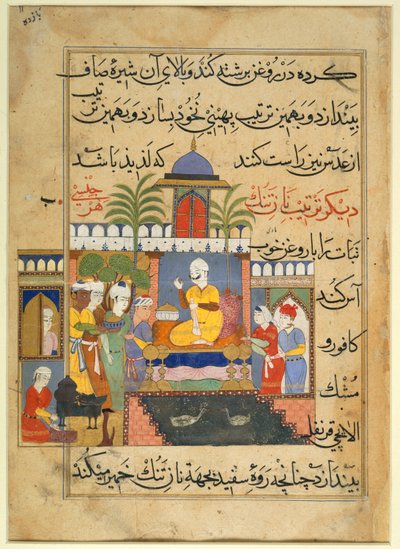 یازده
کرده در روغن برشته کنند و بالای آن شیرهٔ صاف
بیندازد و بهمین ترتیب پهینی نخود بسازد و بهمین ترتیب
از عدس نیز راست کنند که لذیذ باشد
دیگر ترتیب نازتنک هر جنسی
نبات را با روغن خوب
آس کند
کافور و
مشک
الاچی قرنفل
بیندازد چنانچه روهٔ سفید بجهة نازتنک خمیر میکند